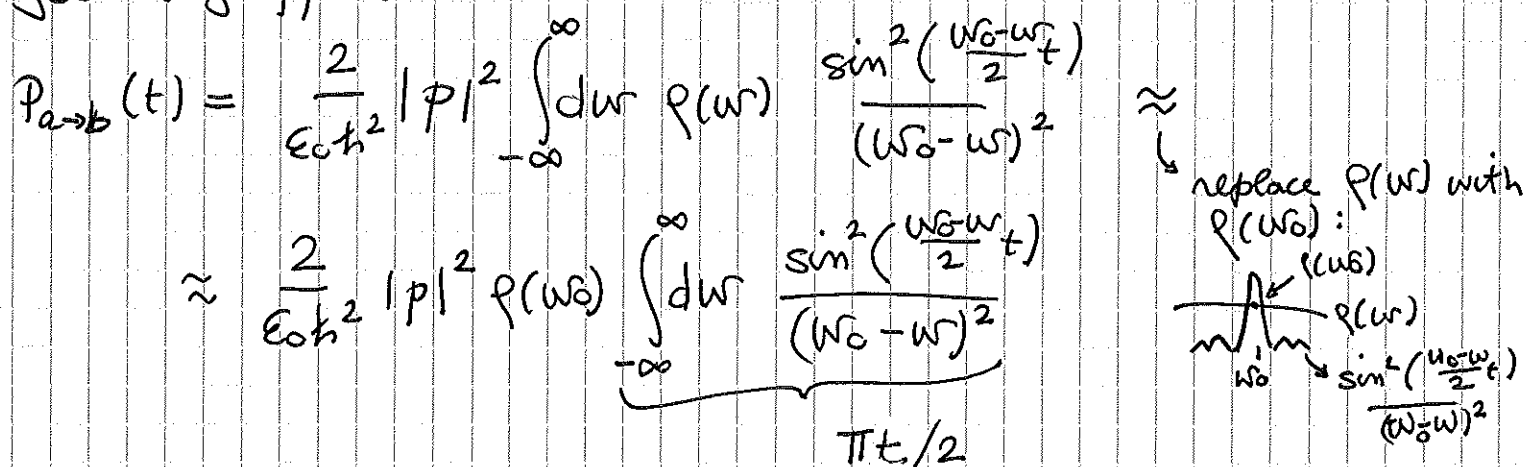 P_{a→b}(t) = \frac{2}{ε_0 ħ^2} |p|^2 \int_{-∞}^{∞} dω ρ(ω) \frac{\sin^2(\frac{ω_0-ω}{2} t)}{(ω_0-ω)^2} ≈
replace ρ(ω) with
ρ(ω_0) :
≈ \frac{2}{ε_0 ħ^2} |p|^2 ρ(ω_0) \int_{-∞}^{∞} dω \frac{\sin^2(\frac{ω_0-ω}{2} t)}{(ω_0-ω)^2}
πt/2
ρ(ω_0)
ρ(ω)
ω_0
\frac{\sin^2(\frac{ω_0-ω}{2} t)}{(ω_0-ω)^2}